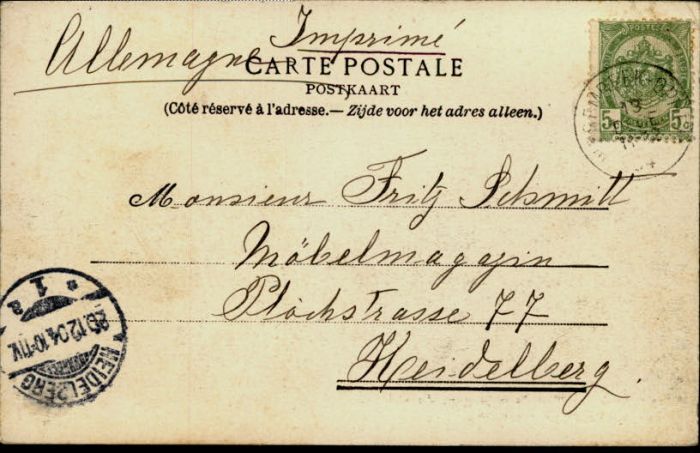 Imprimé
Allemagne
CARTE POSTALE
POSTKAART
(Côté réservé à l'adresse.— Zijde voor het adres alleen.)
POSTES
5c 5c
Monsieur Fritz Schmitt
Möbelmagazin
Plöckstrasse 77
Heidelberg.
HEIDELBERG
26.12.04.10-11V.
* 1 a